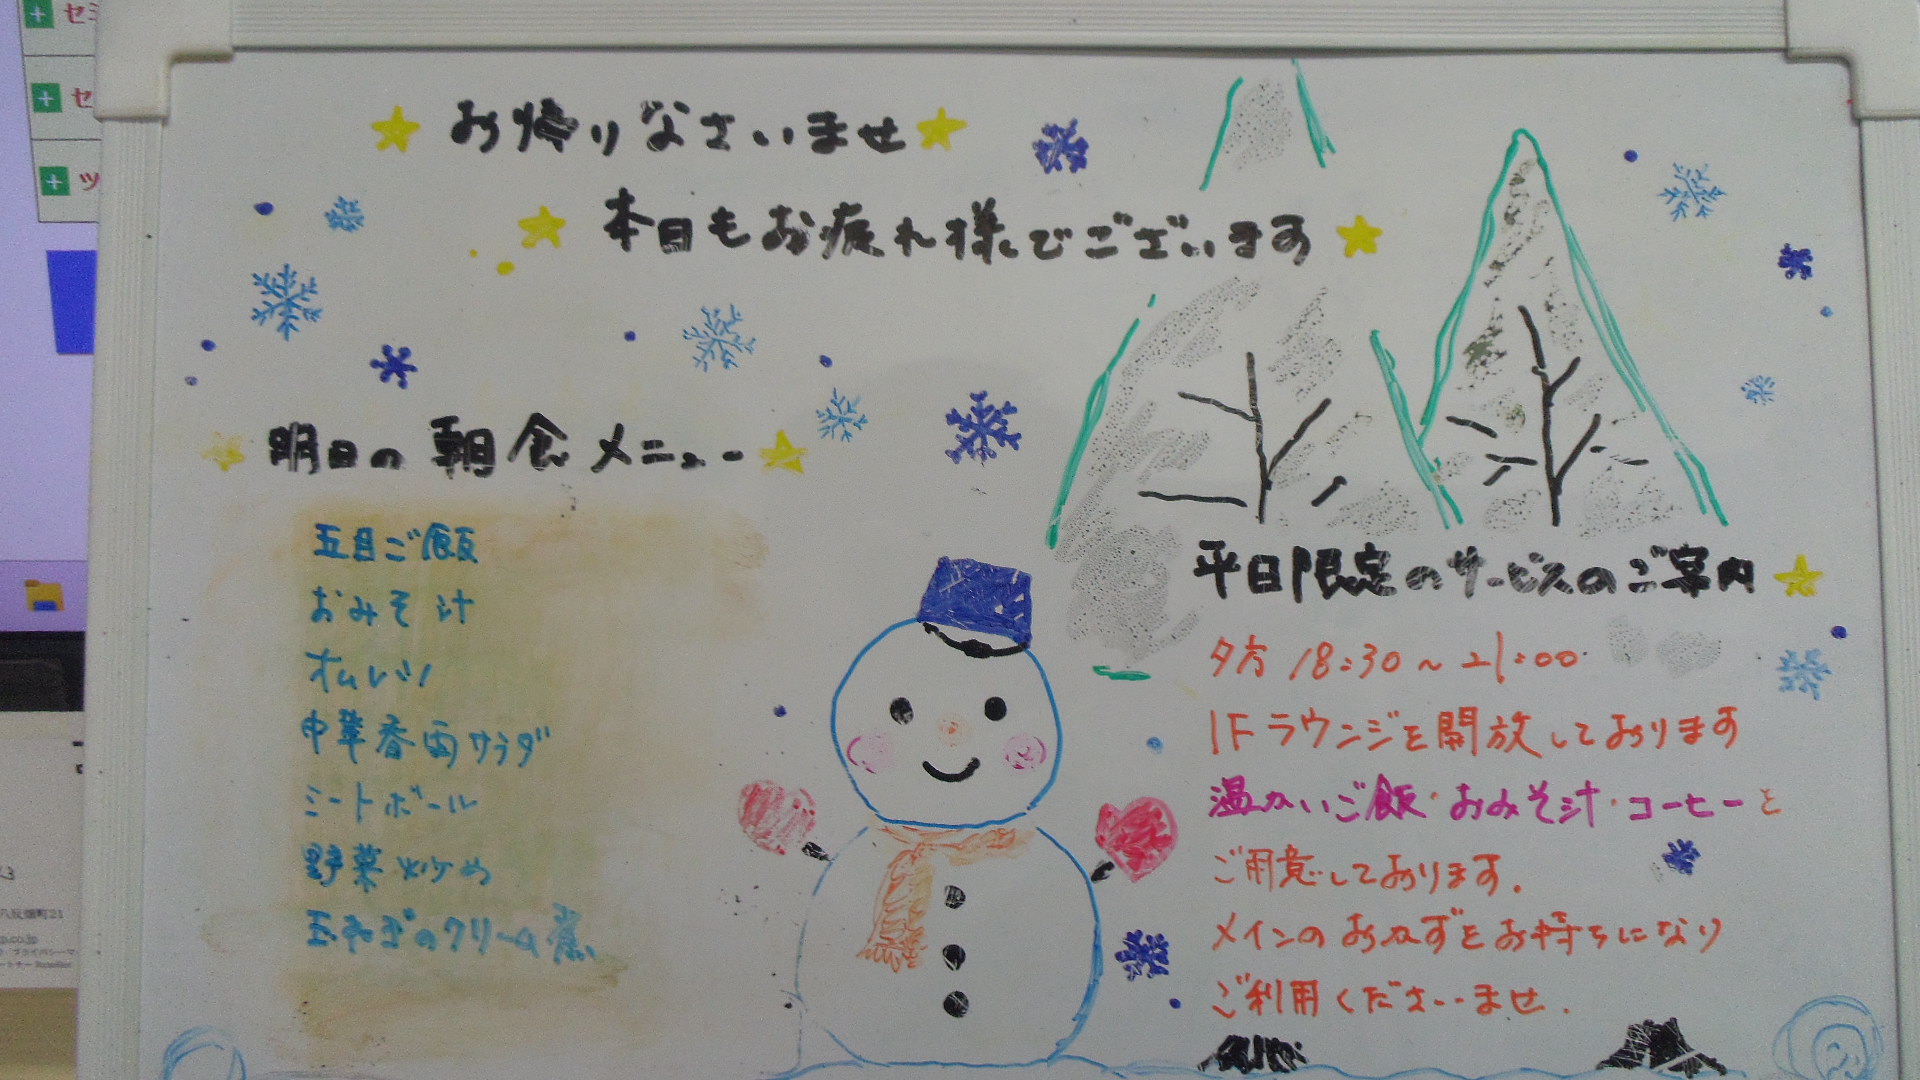 お帰りなさいませ
本日もお疲れ様でございます
明日の朝食メニュー
五目ご飯
おみそ汁
オムレツ
中華春雨サラダ
ミートボール
野菜炒め
玉ねぎのクリーム煮
平日限定のサービスのご案内
夕方 18:30～21:00
1Fラウンジを開放しております
温かいご飯・おみそ汁・コーヒーを
ご用意しております。
メインのおかずをお持ちになり
ご利用くださいませ.
セ
ツ
八反畑町21
p.co.jp